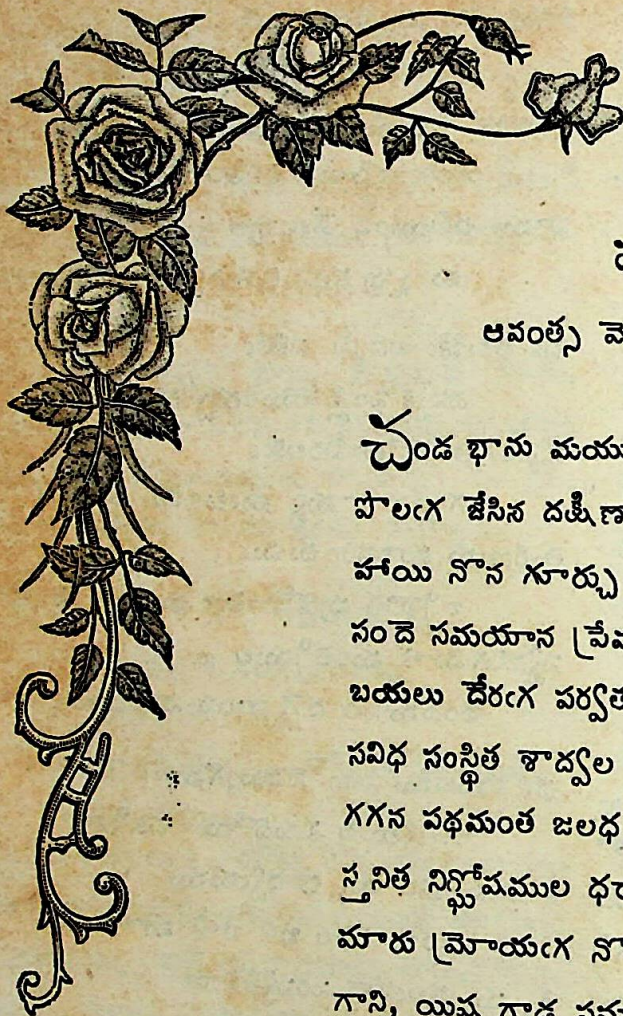 ఆవంత్స
చండ భాను మయు
పొలఁగ జేసిన దక్షిణా
హాయి నొన గూర్చు
సందె సమయాన ప్రేమ
బయలు దేరఁగ పర్వత
సవిధ సంస్థిత శాద్వల
గగన పథమంత జలధ
స్తనిత నిర్ఘోషముల ధర
మారు మ్రోయఁగ నొ
గాని, యిష్ట గాడ